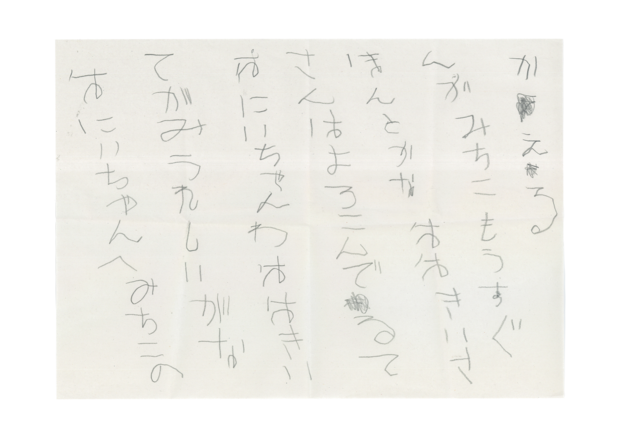 おにいちゃんへ みちこの
てがみうれしいがな
おにいちゃんわおおきい
さんはよろこんでるて
きんとかな おおきいさ
んが みちこもうすぐ
かえる。